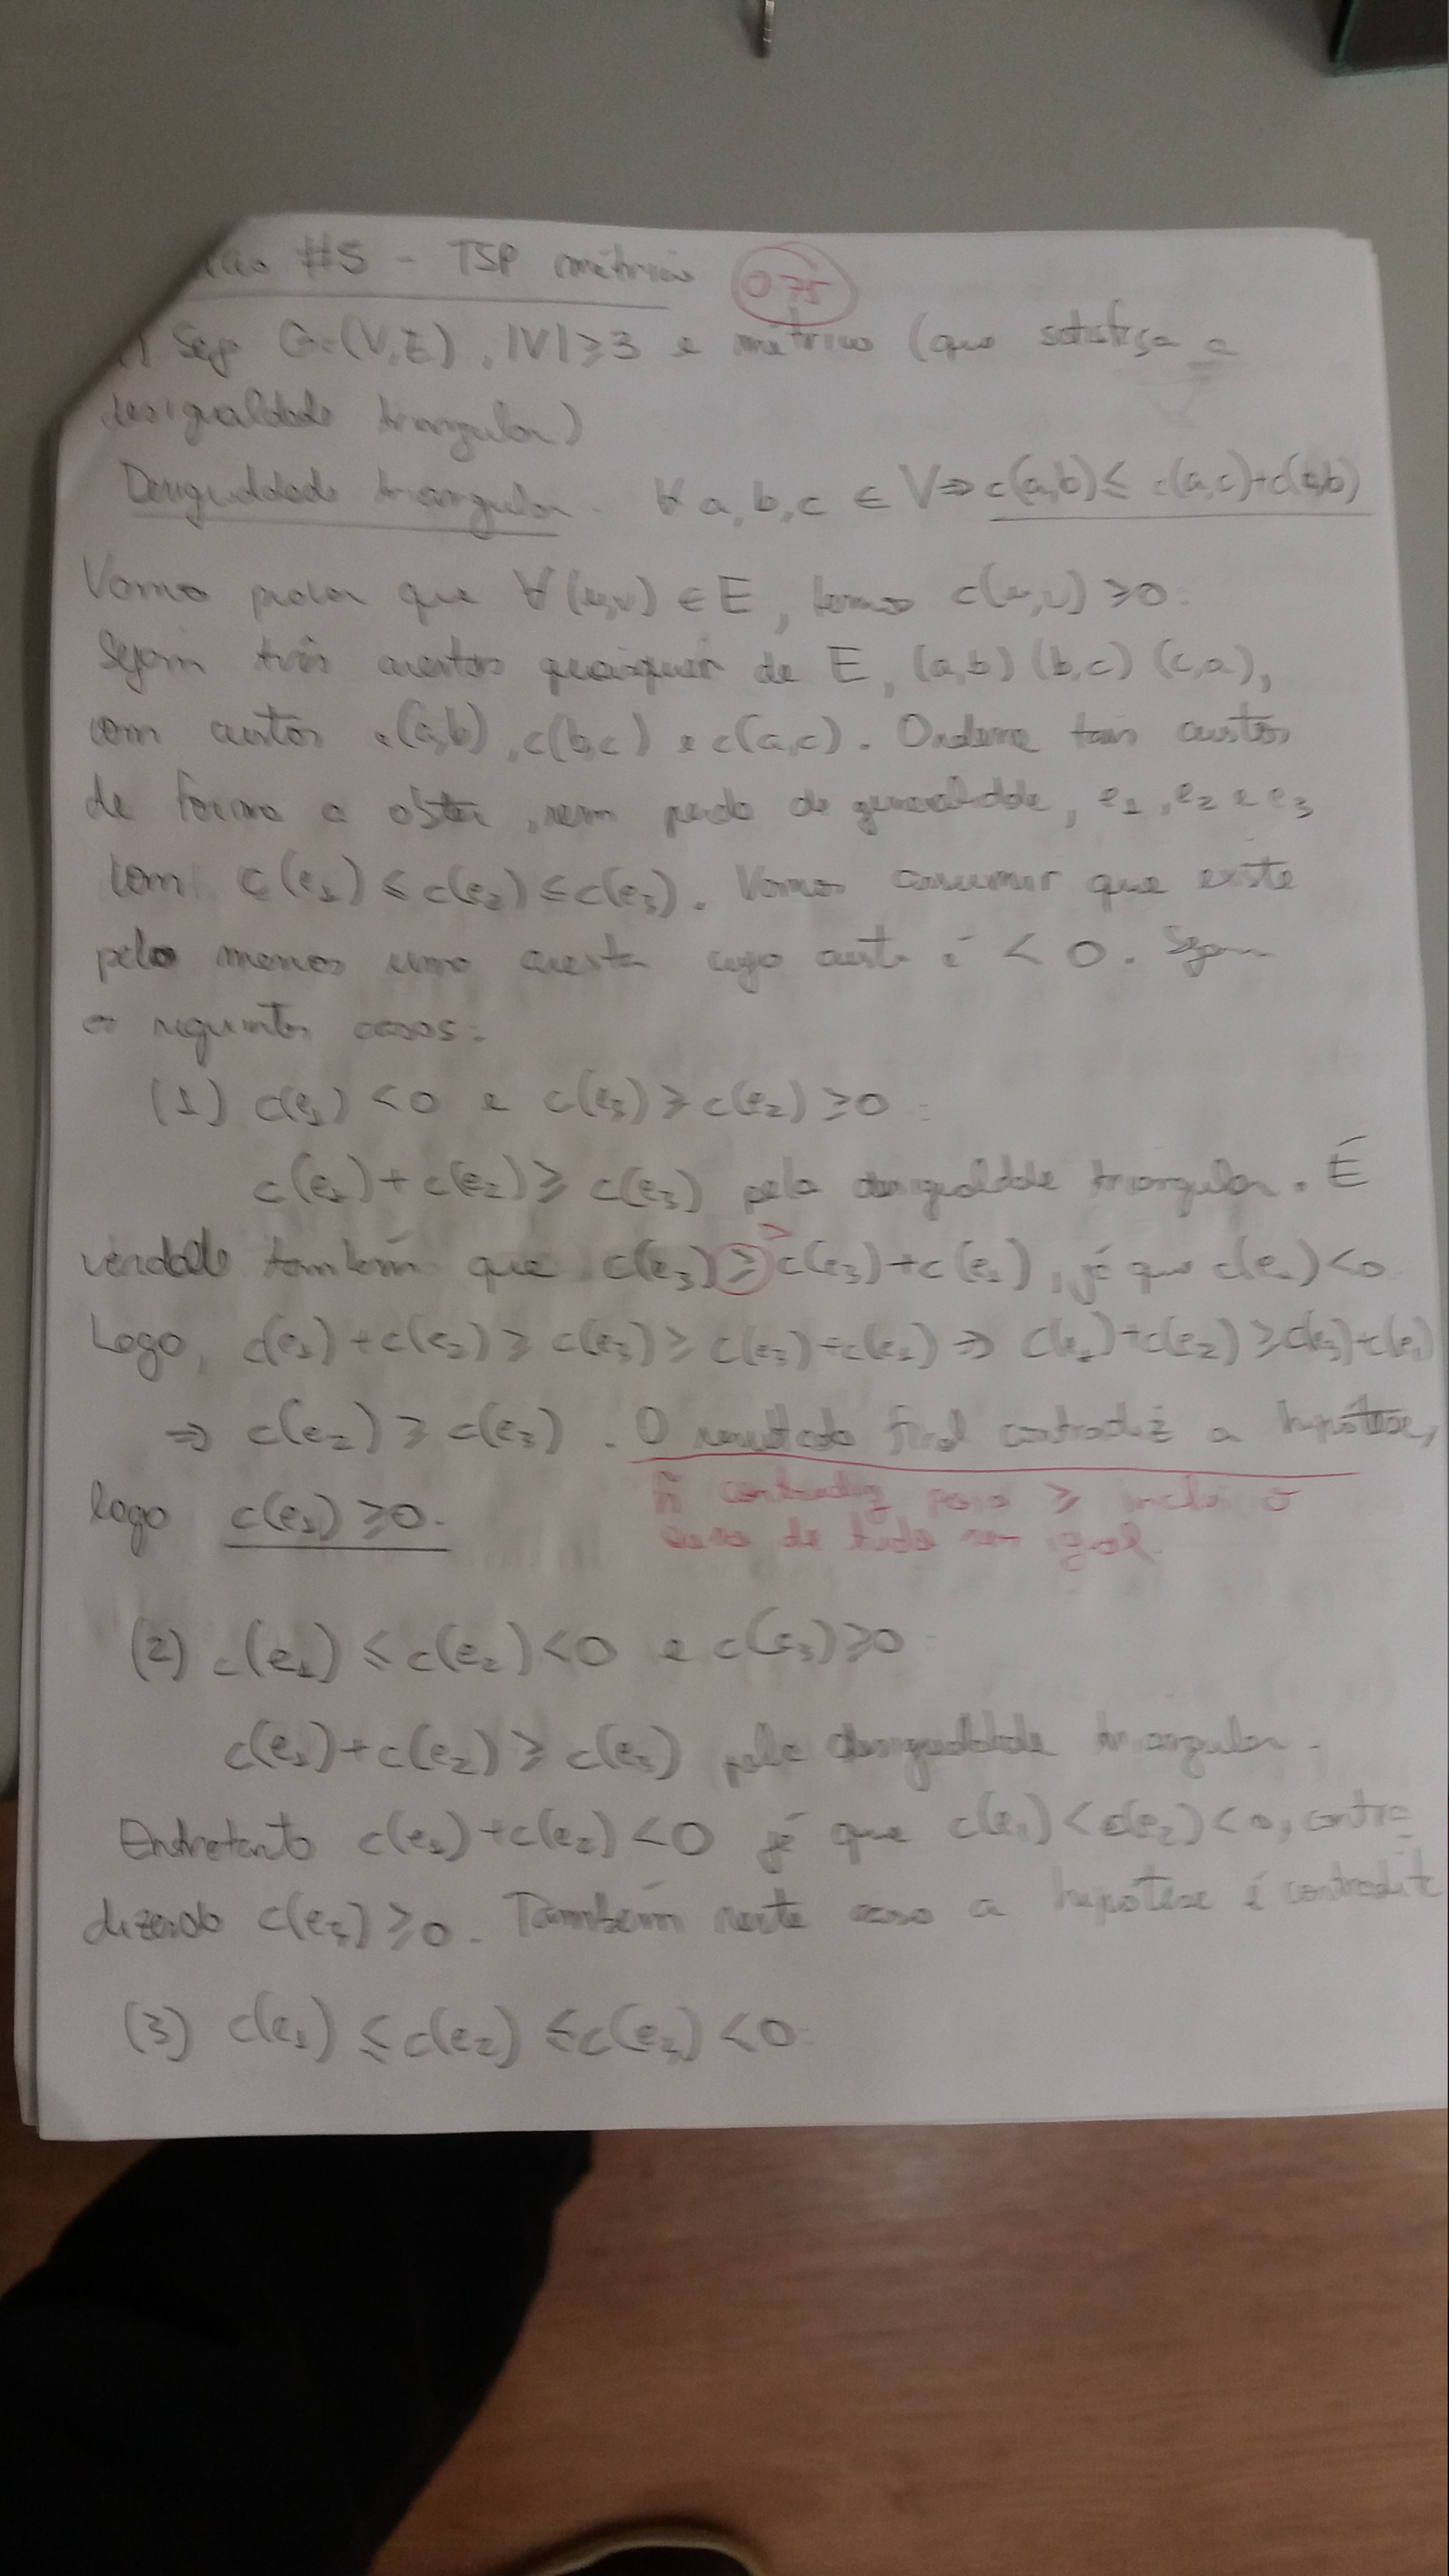 #5 - TSP métrico 0.75
Seja G=(V,E), |V|≥3 e métrico (que satisfaça a
desigualdade triangular)
Desigualdade triangular. ∀ a,b,c ∈ V ⇒ c(a,b) ≤ c(a,c)+c(c,b)
Vamos provar que ∀(u,v) ∈ E, temos c(u,v) ≥0.
Sejam três arestas quaisquer de E, (a,b) (b,c) (c,a),
com custos c(a,b), c(b,c) e c(a,c). Ordene tais custos
de forma a obter, sem perda de generalidade, e1, e2 e e3
com c(e1) ≤ c(e2) ≤ c(e3). Vamos assumir que existe
pelo menos uma aresta cujo custo é < 0. Sejam
os seguintes casos:
(1) c(e1) <0 e c(e3) ≥ c(e2) ≥0:
c(e1)+c(e2) ≥ c(e3) pela desigualdade triangular. É
>
verdade também que c(e3) ≥ c(e3)+c(e1), já que c(e1)<0
Logo, c(e1)+c(e2) ≥ c(e3) ≥ c(e3)+c(e1) ⇒ c(e1)+c(e2) ≥ c(e3)+c(e1)
⇒ c(e2) ≥ c(e3). O resultado final contradiz a hipótese,
ñ contradiz pois ≥ inclui o
logo c(e1) ≥0.
caso de tudo ser igual.
(2) c(e1) ≤ c(e2) <0 e c(e3) ≥0:
c(e1)+c(e2) ≥ c(e3) pela desigualdade triangular.
Entretanto c(e1)+c(e2) <0 já que c(e1) < c(e2) < 0, contra-
dizendo c(e3) ≥0. Também neste caso a hipótese é contradita
(3) c(e1) ≤ c(e2) ≤ c(e3) <0: